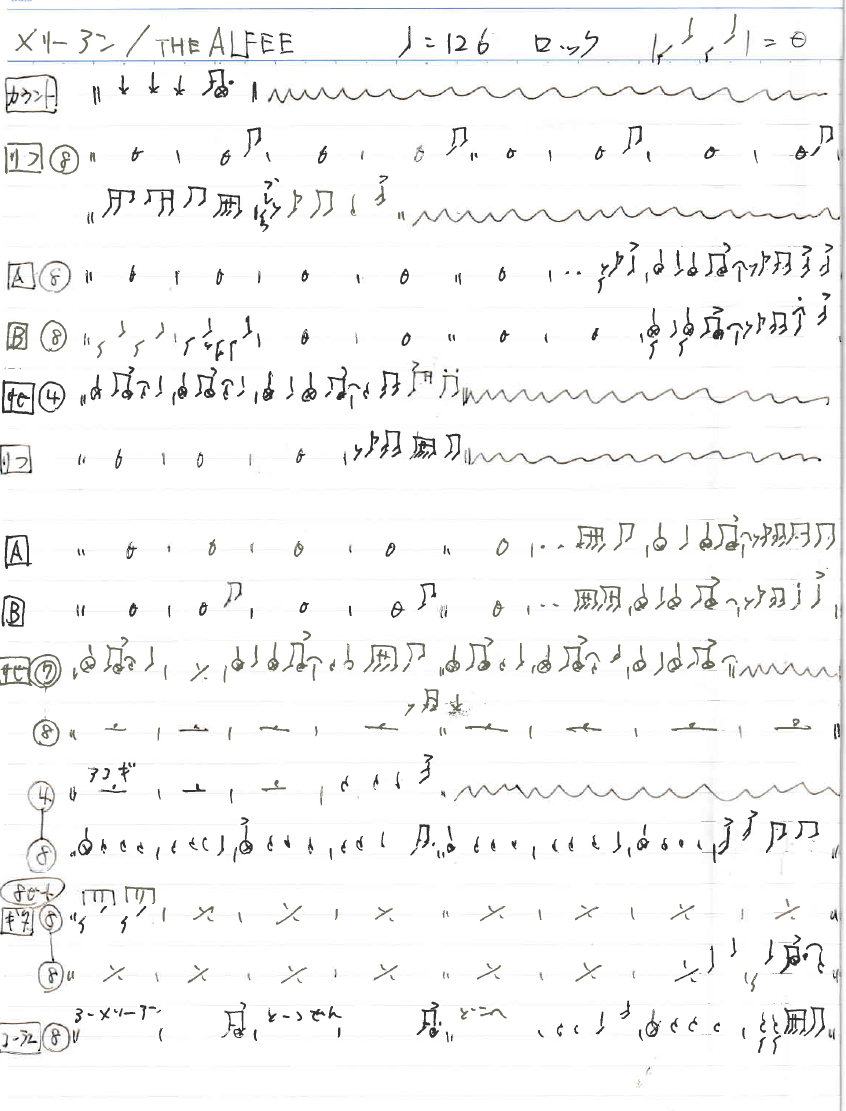 メリーアン / THE ALFEE ♩=126 ロック
カウント
リフ ⑧
A ⑧
B ⑧
サビ ④
リフ
A
B
サビ ⑦
⑧
アコギ
④
⑧
8ビート
ギター ⑧
⑧
コーラス ⑧ ヨーメリーアン とーつぜん どこへ